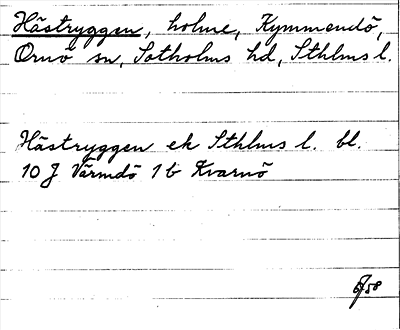 Hästryggen, holme, Kymmendö,
Ornö sn, Sotholms hd, Sthlms l.
Hästryggen ek Sthlms l. bl.
10 J Värmdö 1 b Kvarnö
58